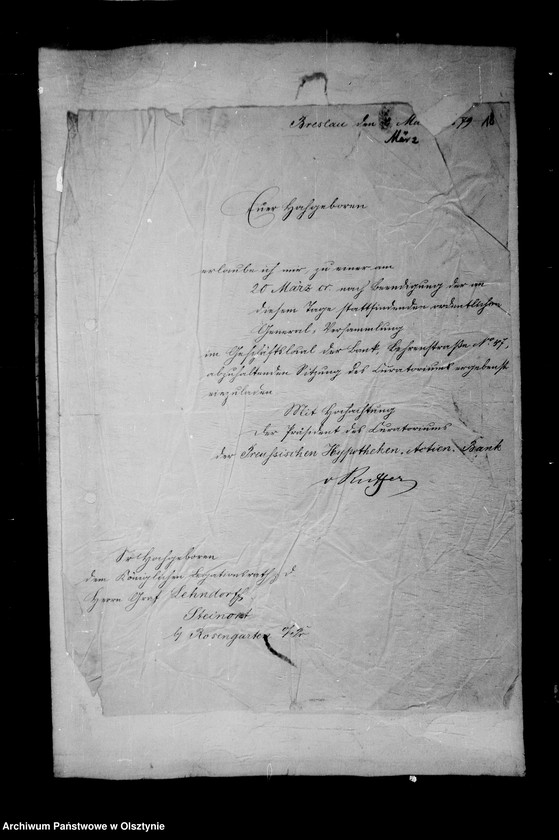 Breslau den Ma 79
März
Euer Hochgeboren
erlaube ich mir, zu einer am
20 März cr nach Beendigung der an
diesem Tage stattfindenden ordentlichen
General-Versammlung
im Geschäftslocal der Bank, Behrenstraße No 47,
abzuhaltenden Sitzung des Curatoriums ergebenst
einzuladen
Mit Hochachtung
Der Präsident des Curatoriums
der Preussischen Hypotheken-Actien-Bank
v
Sr Hochgeboren
dem Königlichen Legationsrath d.
Herrn Graf Lehndorff
Steinort
b/ Rosengarten
Archiwum Państwowe w Olsztynie